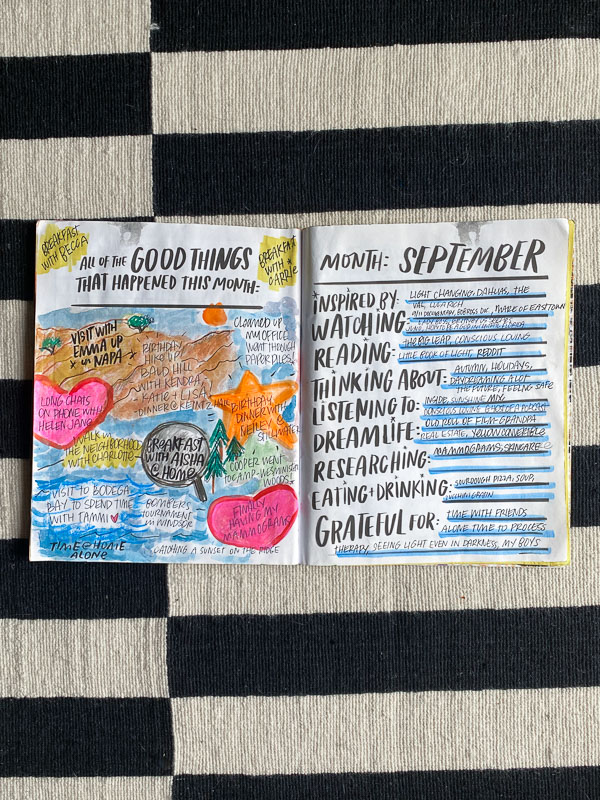 BREAKFAST
WITH BECCA
ALL OF THE GOOD THINGS
THAT HAPPENED THIS MONTH:
BREAKFAST
WITH
CARRIE
VISIT WITH
EMMA UP
IN NAPA
BIRTHDAY
HIKE UP
BALD HILL
WITH KENDRA,
KATIE + LISA
DINNER @ KENNZ HALL
CLEANED UP
MY OFFICE,
WENT THROUGH
PAPER PILES!
LONG CHATS
ON PHONE WITH
HELEN JANE
BIRTHDAY
DINNER WITH
@ STILLWATER
WALK IN
THE NEIGHBORHOOD
WITH CHARLOTTE
BREAKFAST
WITH AISHA
@ HOME
COOPER WENT
TO CAMP
WOODS
VISIT TO BODEGA
BAY TO SPEND TIME
WITH TAMMI ♥
BOMBERS
TOURNAMENT
IN WINDSOR
FINALLY
HAVING MY
MAMMOGRAMS
TIME @ HOME
ALONE
WATCHING A SUNSET ON THE RIDGE
MONTH: SEPTEMBER
INSPIRED BY: LIGHT CHANGING, DAHLIAS, THE
WATCHING: MARE OF EASTTOWN
READING: THE BIG LEAP, CONSCIOUS LOVING
LITTLE BOOK OF LIGHT, REDDIT
THINKING ABOUT: AUTUMN, HOLIDAYS,
THE FUTURE, FEELING SAFE
LISTENING TO: INSIDE, SUNSHINE MIX
DREAMLIFE:
REAL ESTATE, YELLOW CONVERTIBLE
RESEARCHING: MAMMOGRAMS, SKINCARE
EATING + DRINKING: SOURDOUGH PIZZA, SOUP,
GRATEFUL FOR: TIME WITH FRIENDS
ALONE TIME TO PROCESS
THERAPY, SEEING LIGHT EVEN IN DARKNESS, MY BOYS